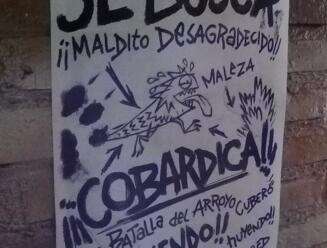 SE BUSCA
¡¡MALDITO DESAGRADECIDO!!
MALEZA
¡¡¡COBARDICA!!
BATALLA DEL ARROYO CUBERO
YENDO!!
HUYENDO!!